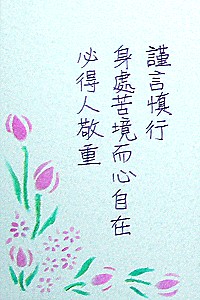 謹言慎行
身處苦境而心自在
必得人敬重